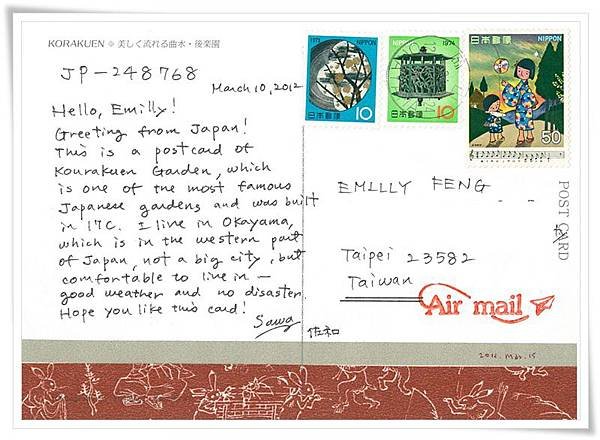 KORAKUEN ❊ 美しく流れる曲水・後楽園
JP-248768
March 10, 2012
Hello, Emilly!
Greeting from Japan!
This is a postcard of
Kourakuen Garden, which
is one of the most famous
Japanese gardens and was built
in 17C. I live in Okayama,
which is in the western part
of Japan, not a big city, but
comfortable to live in —
good weather and no disaster.
Hope you like this card!
Sawa
佐和
1973 NIPPON
日本郵便 10
NIPPON 1974
日本郵便 10
NIPPON
日本郵便
50
EMILLY FENG
Taipei 23582
Taiwan
Air mail
POST CARD
2012. Mar. 15